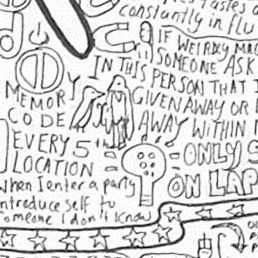 constantly in flu
IF WEIRDLY MAG
SOMEONE ASK
IN THIS PERSON THAT I
GIVEN AWAY OR
AWAY WITHIN
MEMORY
CODE
EVERY 5th
LOCATION
ONLY S
ON LAP
when I enter a party
introduce self to
someone I don't know